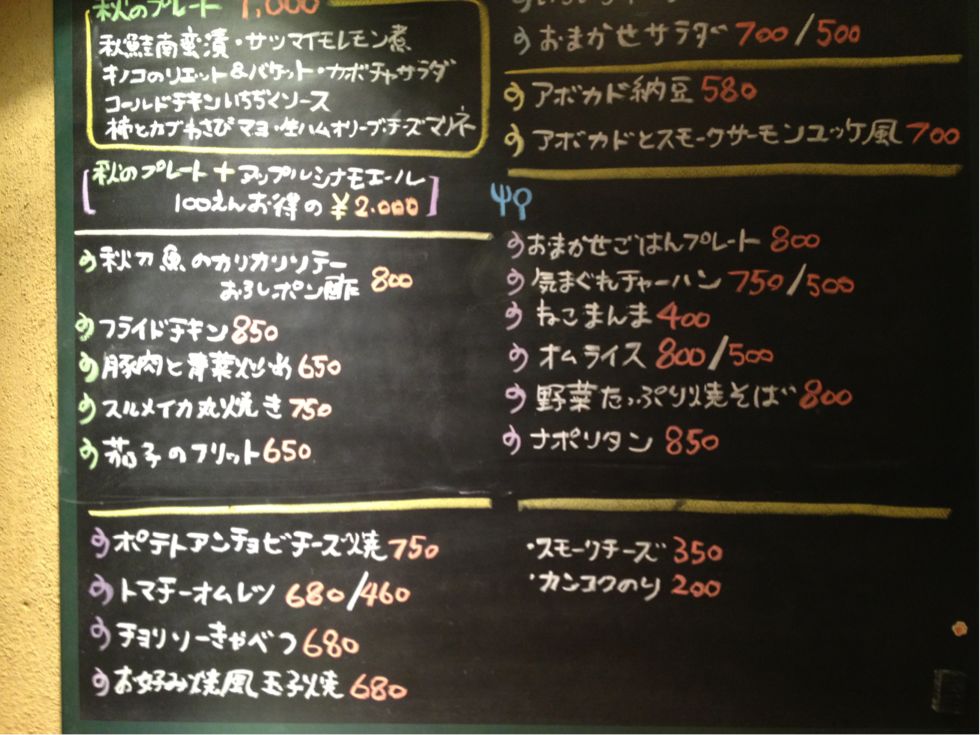 秋のプレート 1,000
秋鮭南蛮漬・サツマイモレモン煮
キノコのリエット&バケット・カボチャサラダ
コールドチキンいちぢくソース
柿とカブわさびマヨ・生ハムオリーブチーズマリネ
[秋のプレート+アップルシナモエール
100えんお得の ¥2.000]
秋刀魚のカリカリソテー
おろしポン酢 800
フライドチキン 850
豚肉と青菜炒め 650
スルメイカ丸焼き 750
茄子のフリット 650
ポテトアンチョビチーズ焼 750
トマチーオムレツ 680/460
チョリソーきゃべつ 680
お好み焼風玉子焼 680
おまかせサラダ 700/500
アボカド納豆 580
アボカドとスモークサーモンユッケ風 700
おまかせごはんプレート 800
気まぐれチャーハン 750/500
ねこまんま 400
オムライス 800/500
野菜たっぷり焼そば 800
ナポリタン 850
・スモークチーズ 350
・カンコクのり 200